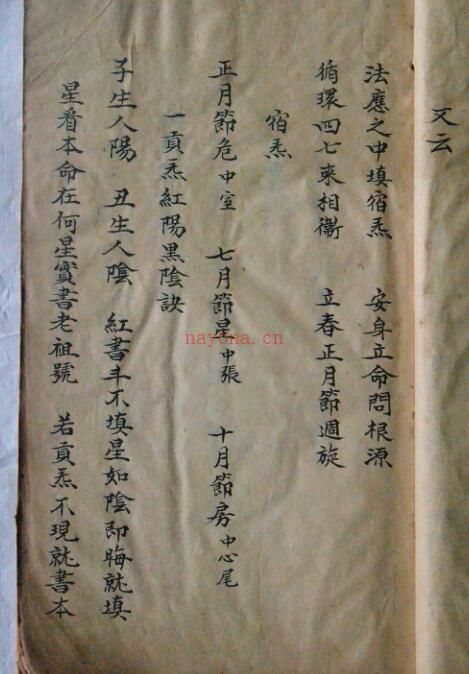 又云
法應之中填宿炁 安身立命問根源
循環四七來相衞 立春正月節週旋
宿炁
正月節危中室 七月節星中張 十月節房中心尾
一貢炁紅陽黑陰訣
子生人陽 丑生人陰 紅書斗不填星如陰即晦就填
星看本命在何星實書老祖號 若貢炁不現就書本
nayona.cn